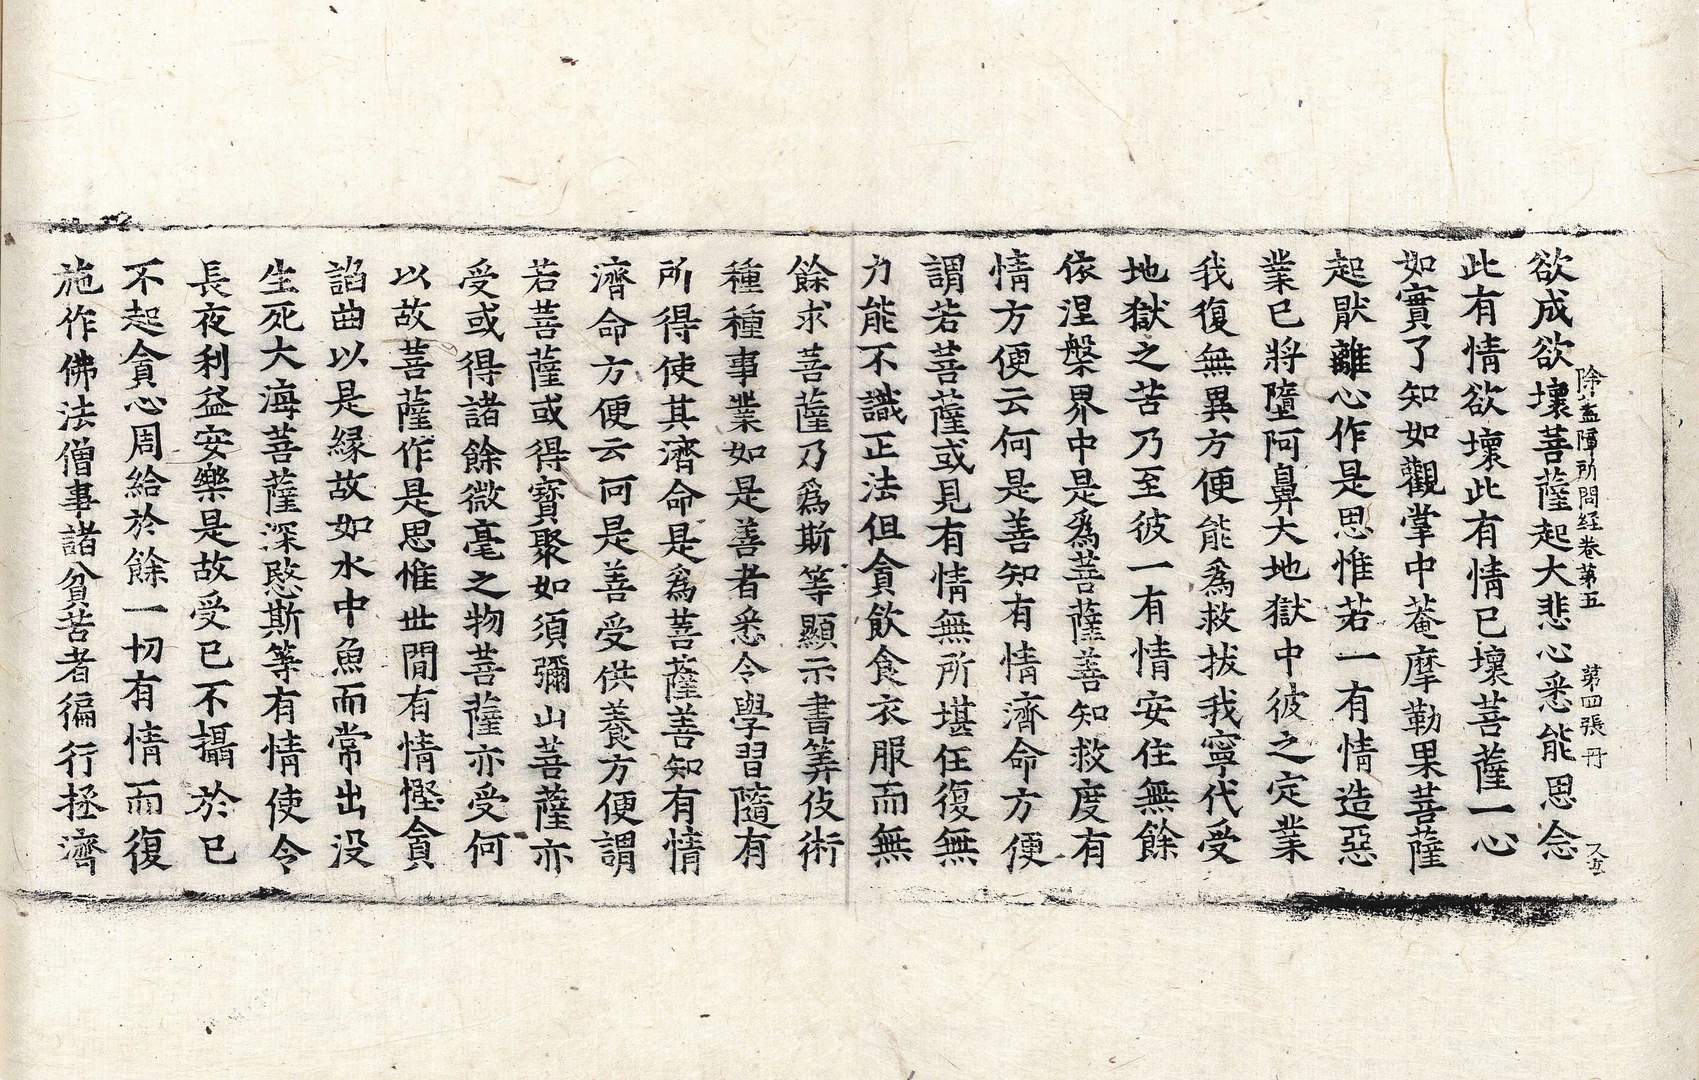 除盖障所問経卷第五　第四張　丹
欲成欲壞菩薩起大悲心悉能思念
此有情欲壞此有情已壞菩薩一心
如實了知如觀掌中菴摩勒果菩薩
起猒離心作是思惟若一有情造惡
業已將墮阿鼻大地獄中彼之定業
我復無異方便能爲救拔我寧代受
地獄之苦乃至彼一有情安住無餘
依涅槃界中是爲菩薩善知救度有
情方便云何是善知有情濟命方便
謂若菩薩或見有情無所堪任復無
力能不識正法但貪飲食衣服而無
餘求菩薩乃爲斯等顯示書筭伎術
種種事業如是善者悉令學習隨有
所得使其濟命是爲菩薩善知有情
濟命方便云何是善受供養方便謂
若菩薩或得寶聚如須彌山菩薩亦
受或得諸餘微毫之物菩薩亦受何
以故菩薩作是思惟世間有情慳貪
諂曲以是緣故如水中魚而常出没
生死大海菩薩深愍斯等有情使令
長夜利益安樂是故受已不攝於已
不起貪心周給於餘一切有情而復
施作佛法僧事諸貧苦者徧行拯濟